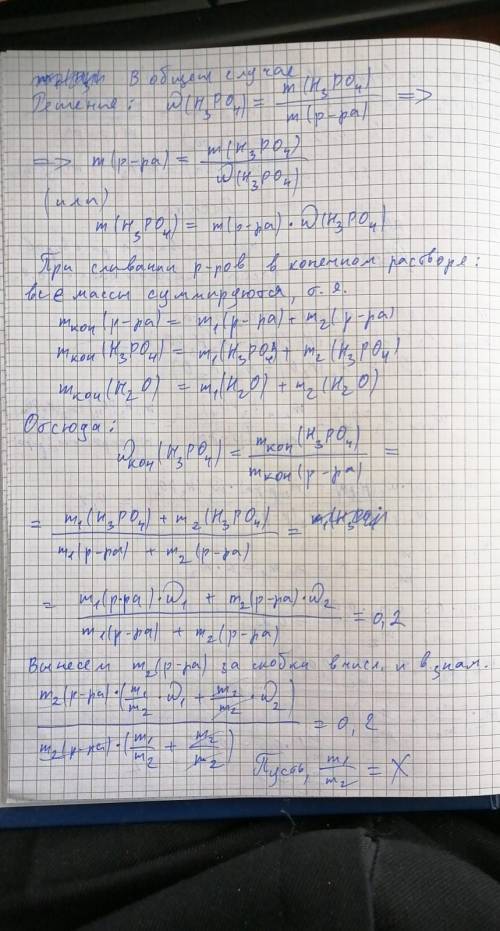 В общем случае
Решение: ω(H₃PO₄) = m(H₃PO₄) / m(р-ра) =>
=> m(р-ра) = m(H₃PO₄) / ω(H₃PO₄)
(или)
m(H₃PO₄) = m(р-ра) · ω(H₃PO₄)
При сливании р-ров в конечном растворе:
все массы суммируются, т.я.
mкон(р-ра) = m₁(р-ра) + m₂(р-ра)
mкон(H₃PO₄) = m₁(H₃PO₄) + m₂(H₃PO₄)
mкон(H₂O) = m₁(H₂O) + m₂(H₂O)
Отсюда:
ωкон(H₃PO₄) = mкон(H₃PO₄) / mкон(р-ра) =
= (m₁(H₃PO₄) + m₂(H₃PO₄)) / (m₁(р-ра) + m₂(р-ра)) =
= (m₁(р-ра) · ω₁ + m₂(р-ра) · ω₂) / (m₁(р-ра) + m₂(р-ра)) = 0,2
Вынесем m₂(р-ра) за скобки в числ. и в знам.
m₂(р-ра) · (m₁/m₂ · ω₁ + m₂/m₂ · ω₂) / m₂(р-ра) · (m₁/m₂ + m₂/m₂) = 0,2
Пусть, m₁/m₂ = X